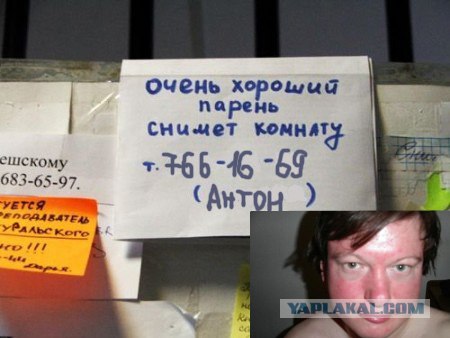 очень хороший
парень
снимет комнату
т. 766-16-69
(Антон)
ешскому
683-65-97.
уется
реподаватель
туральского
Дарья.
YAPLAKAL.COM